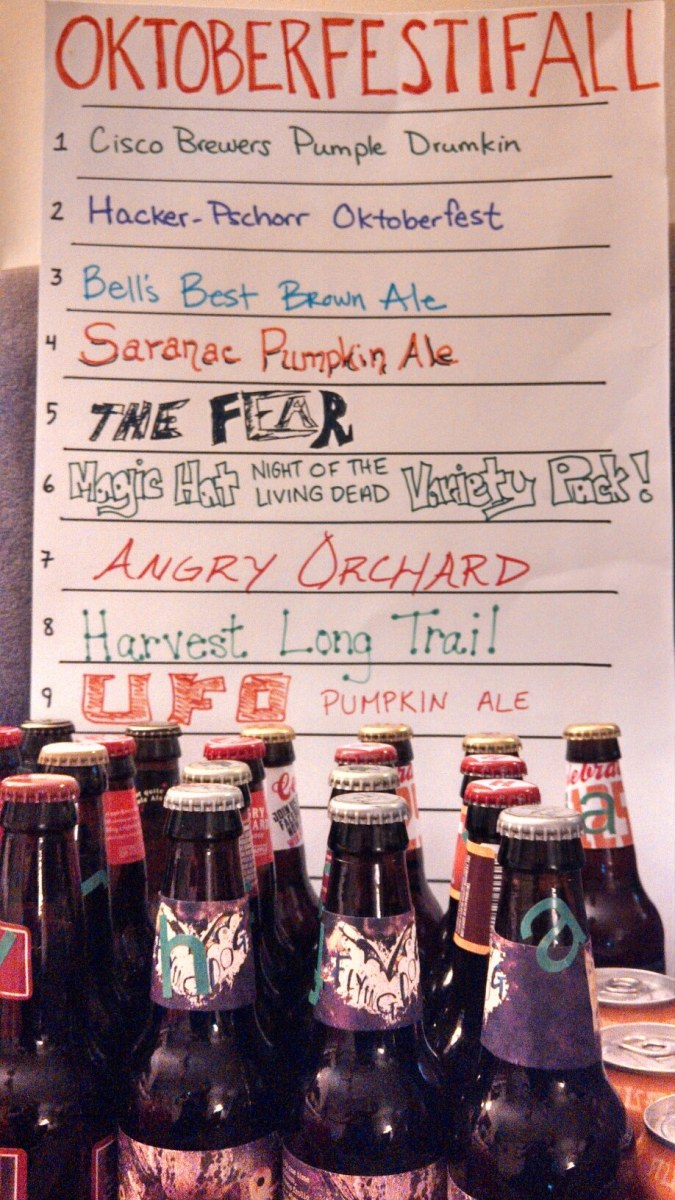 OKTOBERFESTIFALL
1 Cisco Brewers Pumple Drumkin
2 Hacker-Pschorr Oktoberfest
3 Bell's Best Brown Ale
4 Saranac Pumpkin Ale
5 THE FEAR
6 Magic Hat NIGHT OF THE LIVING DEAD Variety Pack!
7 ANGRY ORCHARD
8 Harvest Long Trail
9 UFO PUMPKIN ALE
h
FLYING DOG
a
a